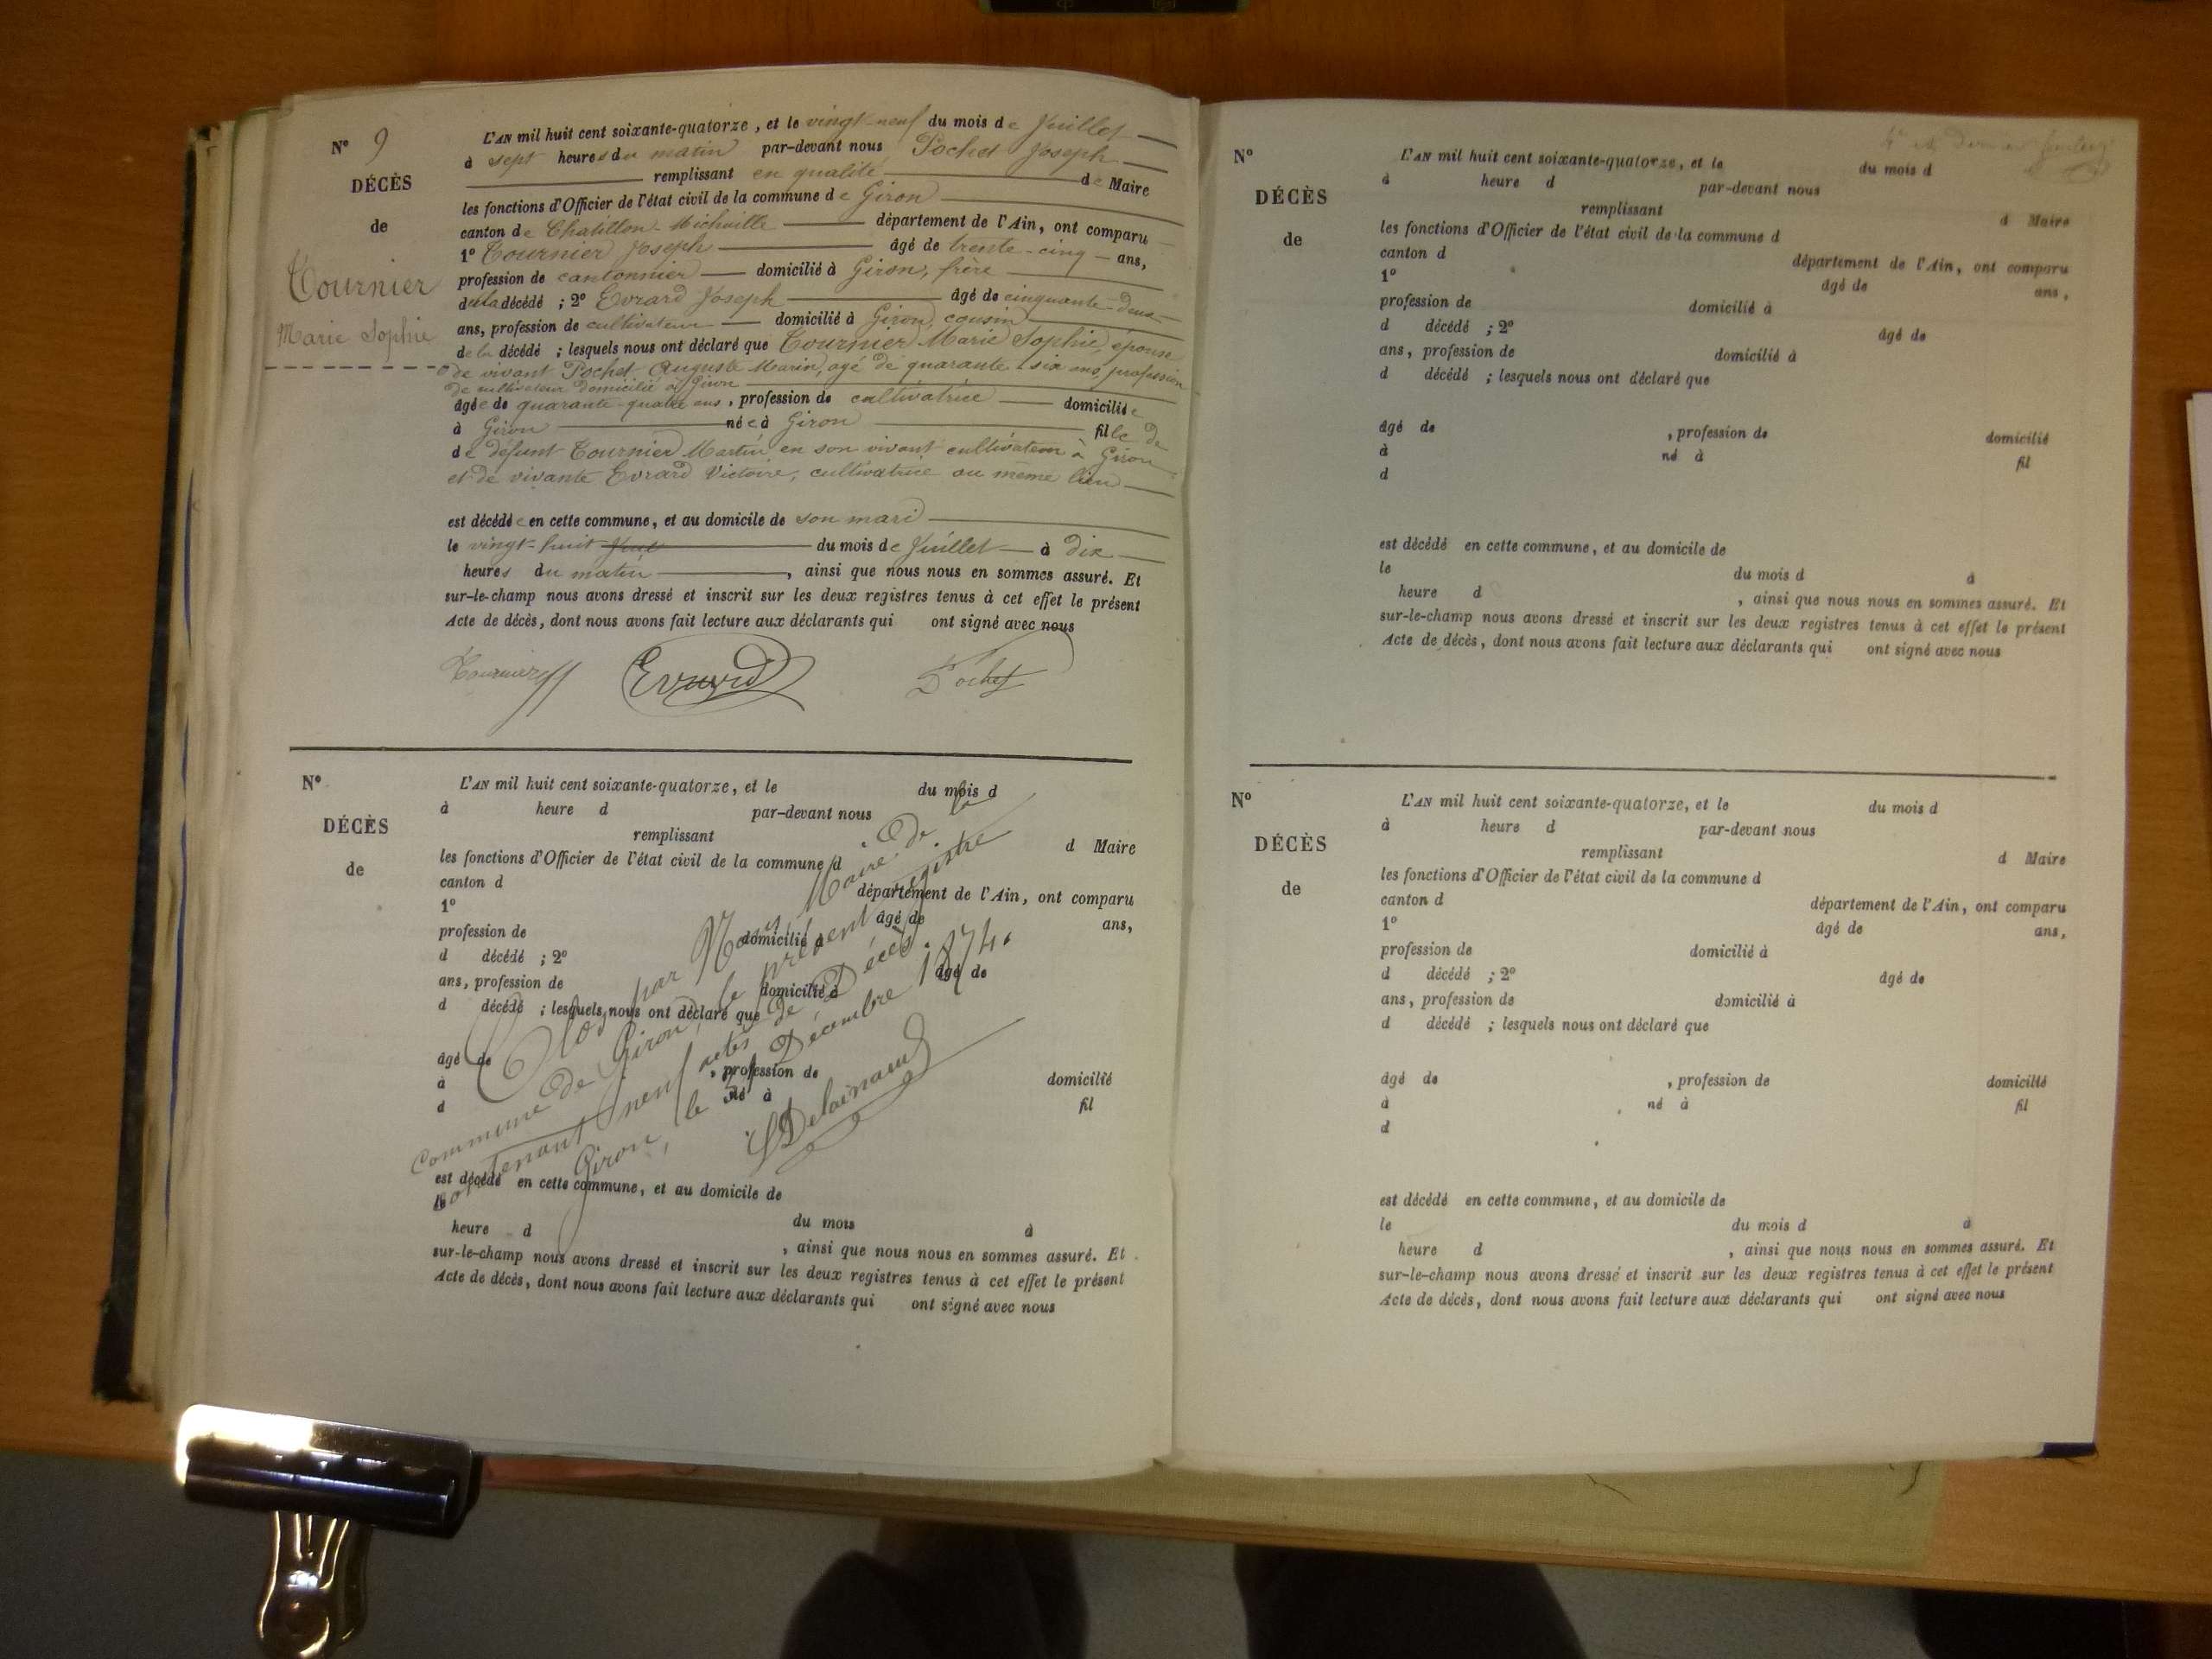 Nº 9
DÉCÈS
de
Tournier
Marie Sophie
L'AN mil huit cent soixante-quatorze, et le vingt-neuf du mois de Juillet
à sept heures du matin par-devant nous Pochet Joseph
remplissant en qualité de Maire
les fonctions d'Officier de l'état civil de la commune de Giron
canton de Chatillon-Michaille département de l'Ain, ont comparu
1º Tournier Joseph âgé de trente-cinq ans,
profession de cantonnier domicilié à Giron, frère
de la décédé ; 2º Evrard Joseph âgé de cinquante-deux
ans, profession de cultivateur domicilié à Giron, cousin
de la décédé ; lesquels nous ont déclaré que Tournier Marie Sophie, épouse
de vivant Pochet Auguste Marin, agé de quarante six ans, profession
de cultivateur domicilié à Giron
âgée de quarante-quatre ans, profession de cultivatrice domiciliée
à Giron née à Giron fille de
de défunt Tournier Martin en son vivant cultivateur à Giron
et de vivante Evrard Victoire, cultivatrice au même lieu
est décédée en cette commune, et au domicile de son mari
le vingt-huit du mois de Juillet à dix
heures du matin, ainsi que nous nous en sommes assuré. Et
sur-le-champ nous avons dressé et inscrit sur les deux registres tenus à cet effet le présent
Acte de décès, dont nous avons fait lecture aux déclarants qui ont signé avec nous
Tournier Evrard Pochet
Nº
DÉCÈS
de
L'AN mil huit cent soixante-quatorze, et le du mois d
à heure d par-devant nous
remplissant d Maire
les fonctions d'Officier de l'état civil de la commune d
canton d département de l'Ain, ont comparu
1º âgé de ans,
profession de domicilié à
d décédé ; 2º âgé de
ans, profession de domicilié à
d décédé ; lesquels nous ont déclaré que
âgé de , profession de domicilié
à né à fil
d
est décédé en cette commune, et au domicile de
le du mois à
heure d , ainsi que nous nous en sommes assuré. Et
sur-le-champ nous avons dressé et inscrit sur les deux registres tenus à cet effet le présent
Acte de décès, dont nous avons fait lecture aux déclarants qui ont signé avec nous
Clos par Nous, Maire de la
commune de Giron, le présent registre
contenant neuf actes de Décès.
Giron, le 31 Décembre 1874.
Nº
DÉCÈS
de
L'AN mil huit cent soixante-quatorze, et le du mois d
à heure d par-devant nous
remplissant d Maire
les fonctions d'Officier de l'état civil de la commune d
canton d département de l'Ain, ont comparu
1º âgé de ans,
profession de domicilié à
d décédé ; 2º âgé de
ans, profession de domicilié à
d décédé ; lesquels nous ont déclaré que
âgé de , profession de domicilié
à né à fil
d
est décédé en cette commune, et au domicile de
le du mois d à
heure d , ainsi que nous nous en sommes assuré. Et
sur-le-champ nous avons dressé et inscrit sur les deux registres tenus à cet effet le présent
Acte de décès, dont nous avons fait lecture aux déclarants qui ont signé avec nous
Nº
DÉCÈS
de
L'AN mil huit cent soixante-quatorze, et le du mois d
à heure d par-devant nous
remplissant d Maire
les fonctions d'Officier de l'état civil de la commune d
canton d département de l'Ain, ont comparu
1º âgé de ans,
profession de domicilié à
d décédé ; 2º âgé de
ans, profession de domicilié à
d décédé ; lesquels nous ont déclaré que
âgé de , profession de domicilié
à né à fil
d
est décédé en cette commune, et au domicile de
le du mois d à
heure d , ainsi que nous nous en sommes assuré. Et
sur-le-champ nous avons dressé et inscrit sur les deux registres tenus à cet effet le présent
Acte de décès, dont nous avons fait lecture aux déclarants qui ont signé avec nous